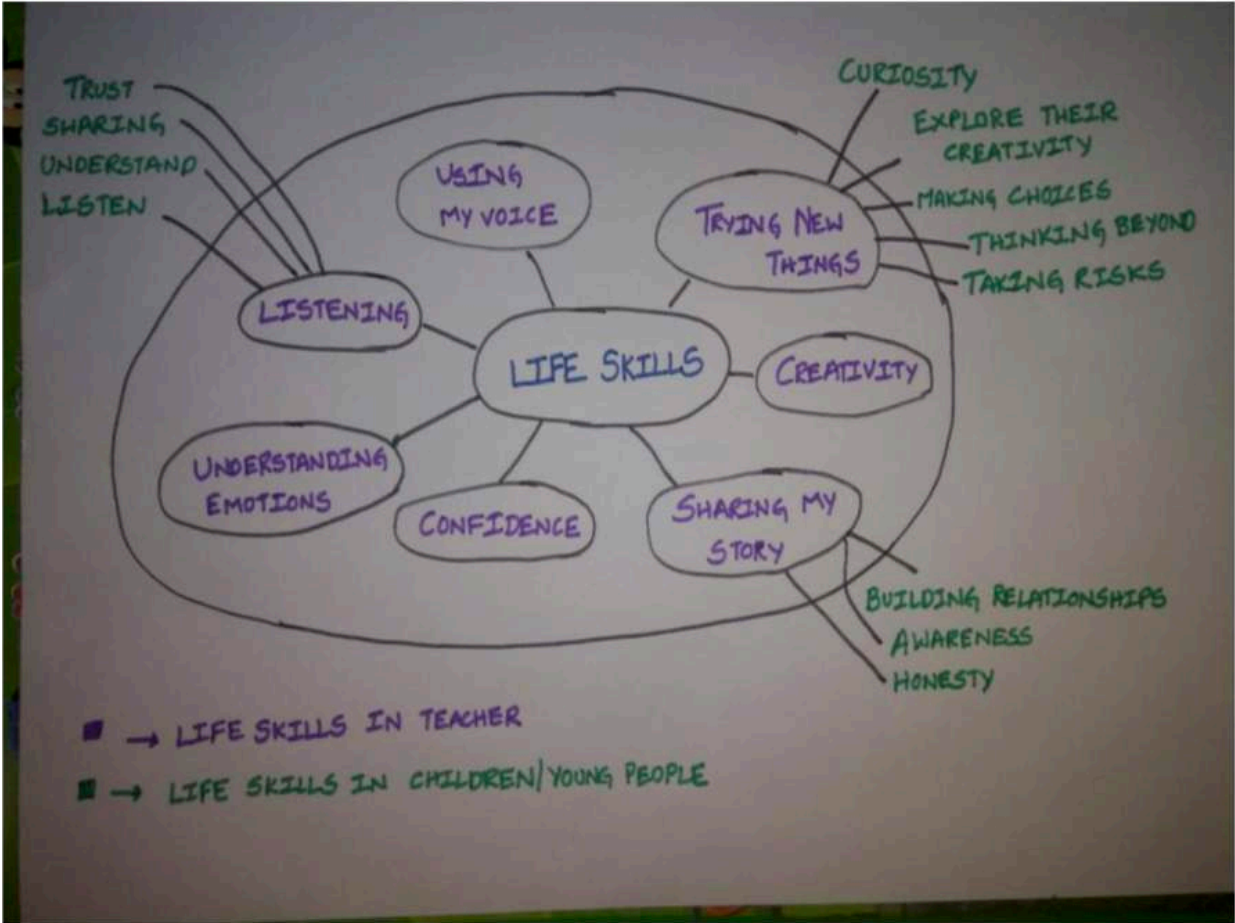 TRUST
SHARING
UNDERSTAND
LISTEN
CURIOSITY
EXPLORE THEIR
CREATIVITY
MAKING CHOICES
THINKING BEYOND
TAKING RISKS
USING
MY VOICE
TRYING NEW
THINGS
LISTENING
LIFE SKILLS
CREATIVITY
UNDERSTANDING
EMOTIONS
CONFIDENCE
SHARING MY
STORY
BUILDING RELATIONSHIPS
AWARENESS
HONESTY
→ LIFE SKILLS IN TEACHER
→ LIFE SKILLS IN CHILDREN/YOUNG PEOPLE